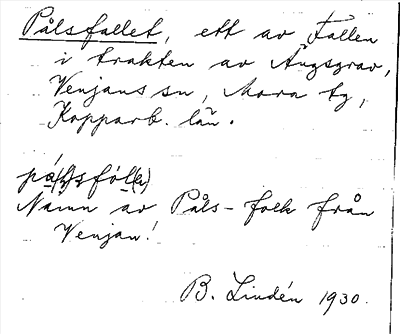 Pålsfallet, ett av Fallen
i trakten av Ångsgrav,
Venjans sn, Mora tg,
Kopparb. län.
Namn av Påls-folk från
Venjan!
B. Lindén 1930.